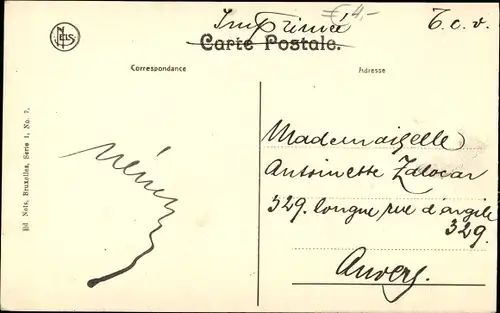 Imprimé
€ 4,-
T.c.v.
NELS
Carte Postale.
Correspondance
Adresse
Ed Nels, Bruxelles, Serie 1, No. 7.
Mademoiselle
Antoinette Zalocar
329. longue rue d'argile
329.
Anvers.